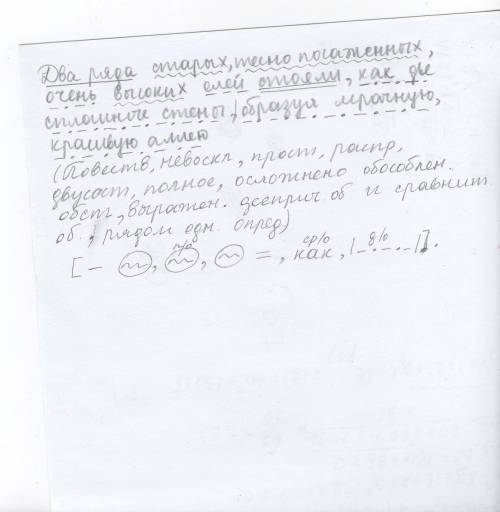 Два ряда старых, тесно посаженных,
очень высоких елей стояли, как две
сплошные стены, образуя мрачную,
красивую аллею
(Повеств, невоскл, прост, распр,
двусост, полное, осложнено обособлен.
обст, выражен. дееприч об и сравнит
об., рядом одн. опред)
п/о ср/о д/о
[- , , =, как, |-.-.-|].